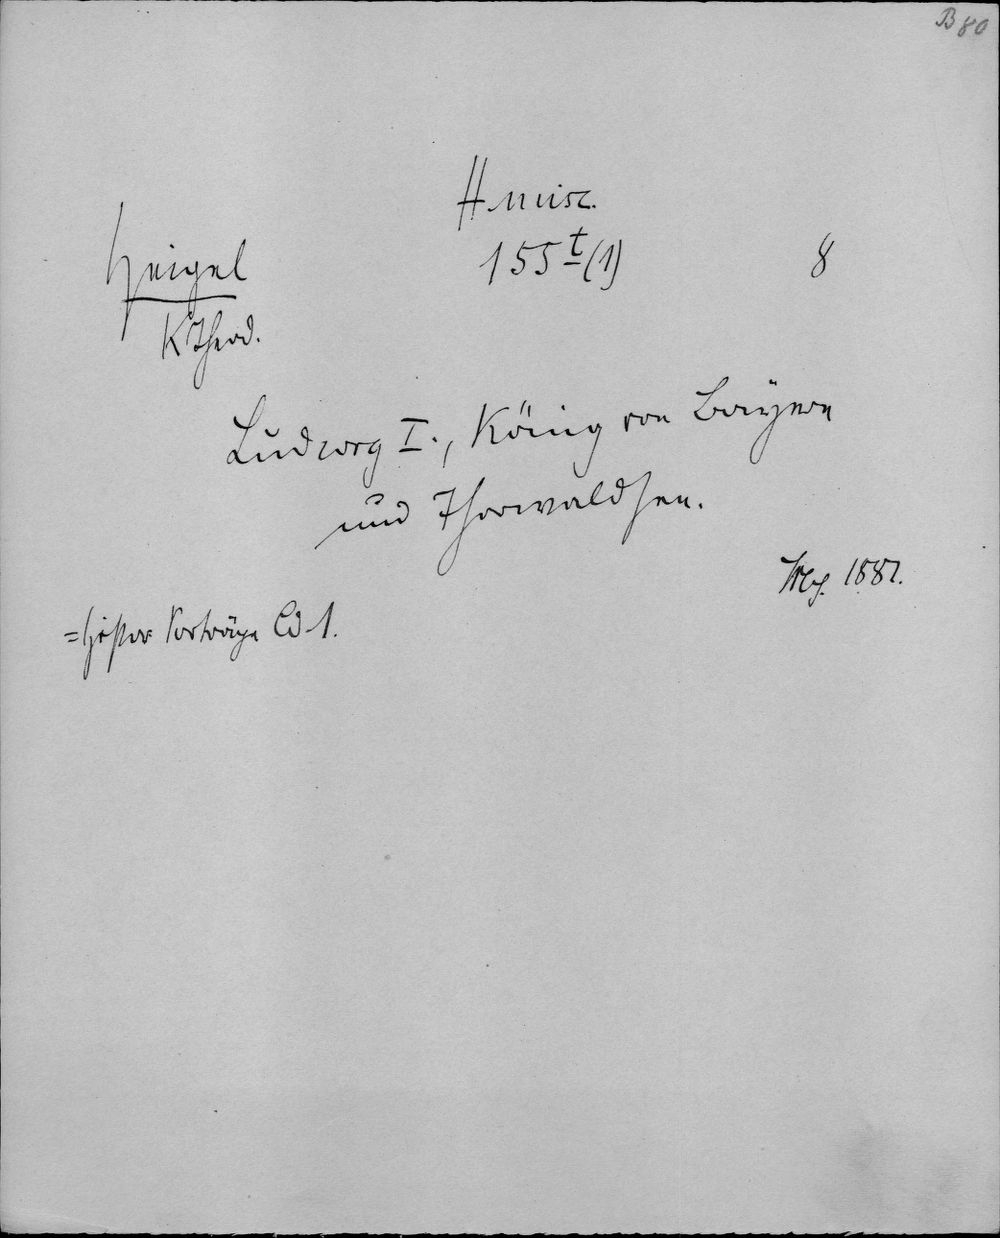 B 80
H. misc.
155 t (1)
8
Heigel
K Theod.
Ludwig I., König von Bayern
und Thorwaldsen.
Mchn. 1882.
= Histor Vorträge Bd 1.